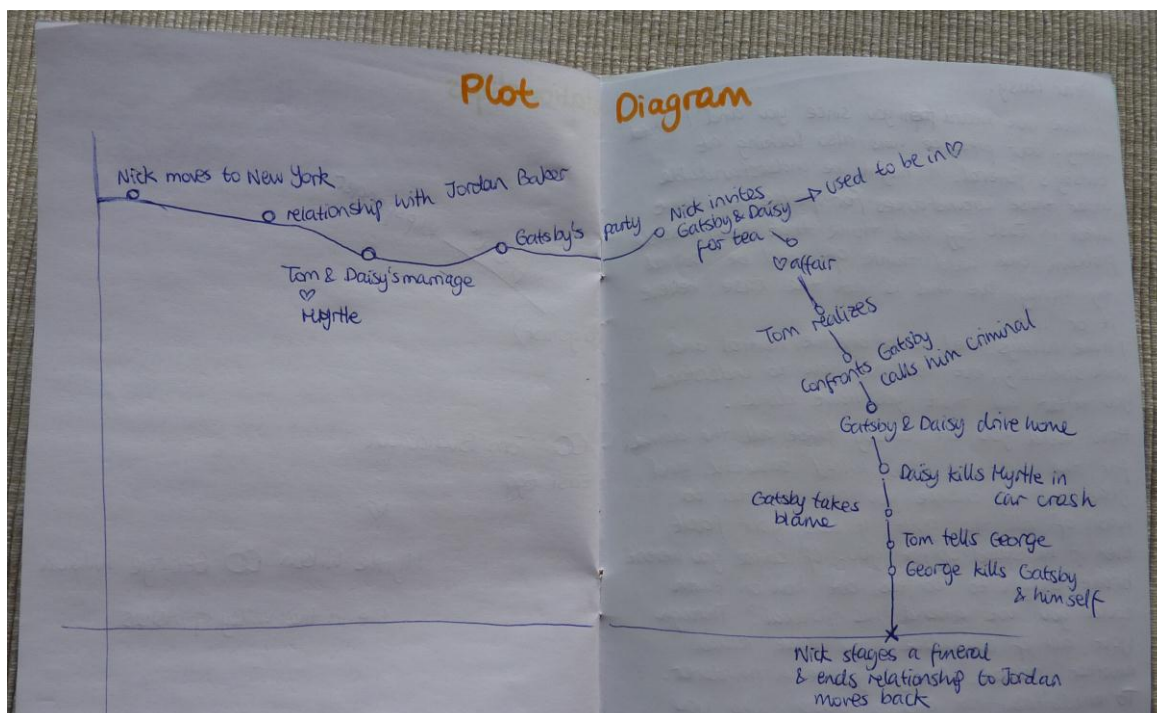 Plot Diagram
Nick moves to New York
relationship with Jordan Baker
Tom & Daisy's marriage
♡
Myrtle
Gatsby's party
Nick invites
Gatsby & Daisy
for tea
used to be in ♡
♡ affair
Tom realizes
Confronts Gatsby
calls him criminal
Gatsby & Daisy drive home
Daisy kills Myrtle in
car crash
Gatsby takes
blame
Tom tells George
George kills Gatsby
& himself
Nick stages a funeral
& ends relationship to Jordan
moves back